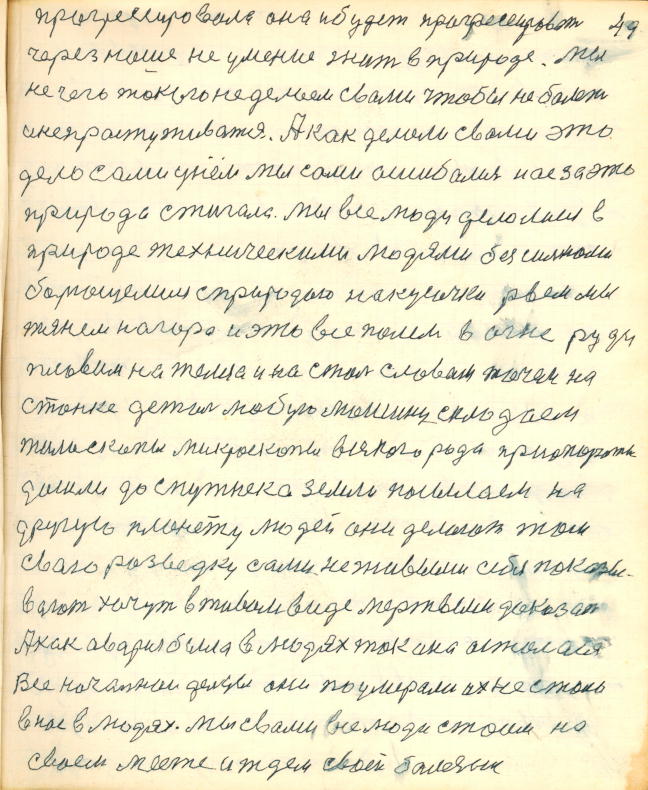 прогрессировала она и будет прогрессироват 49
через наше не умение жит в природе. Мы
нечего такого неделаем свами чтобы не болет
и непростуживатя. А как делоли свами это
дело сами унём мы сами ошибалис нас за это
природа стигала. Мы все люди делолися в
природе техническими людями без силними
борющемися природаю на кусочки рвем мы
тянем нагора и это все полем в огне руду
пловим на желиза и на стал словам точем на
станке детал любую машину складаем
тилископы микроскопы всякого рода приопораты
дошли до спутнека земли посылаем на
другую плонету людей они делают там
сваю розведку сами неживыми себя показы-
вают хочут в живом виде мертвыми доказат
А как авария была в людях так она осталася
Все начатаи делы они поумерали их не стало
в нас в людях. Мы свами все люди стоим на
своем месте и ждем своей болезни